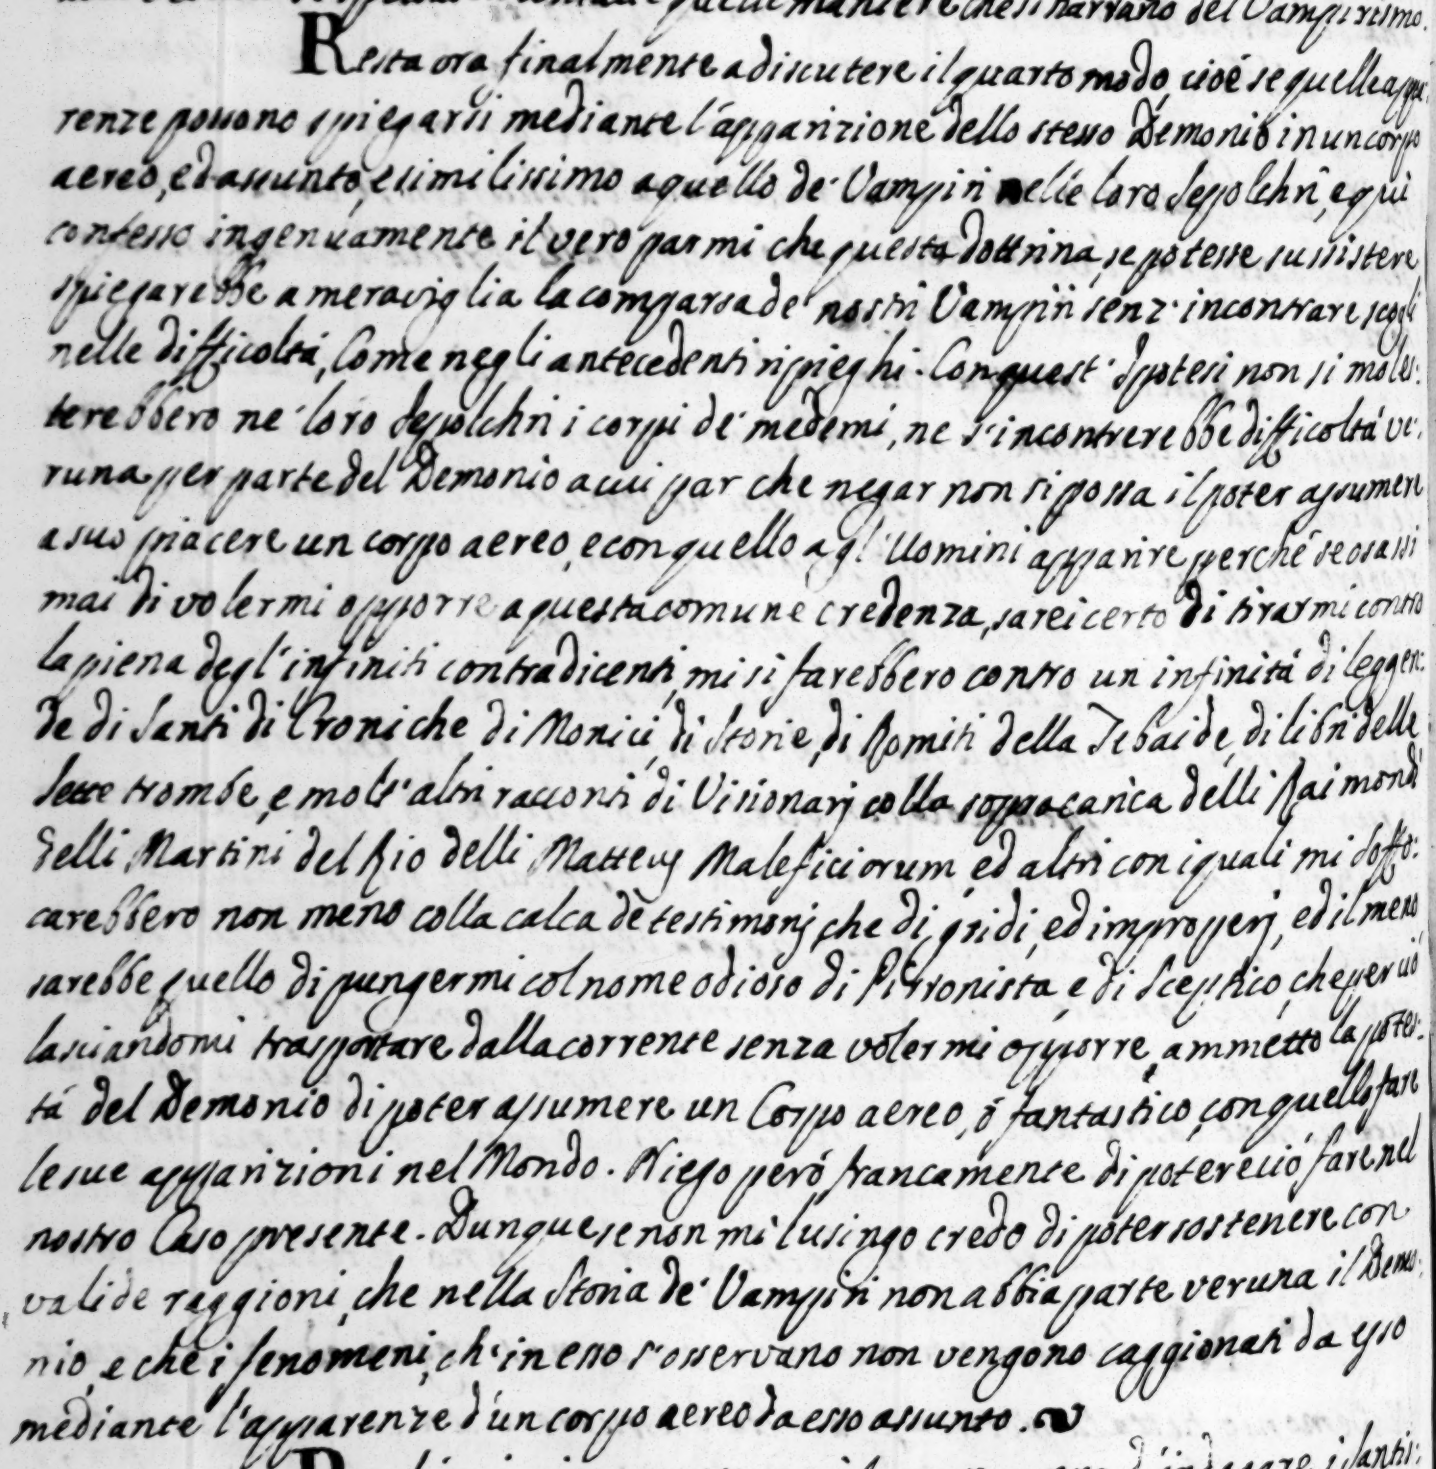 quelle maniere che si narrano del Vampirismo.
Resta ora finalmente a discutere il quarto modo, cioé se quelle appa:
renze possono spiegarsi mediante l'apparizione dello stesso Demonio in un corpo
aereo, ed assunto, e similissimo a quello de' Vampiri nelle loro Sepolchri, e quì
confesso ingenuamente il vero parmi che questa dottrina, se potesse sussistere
spiegarebbe a meraviglia la comparsa de' nostri Vampiri senz' incontrare scogli
nelle difficoltá, Come negli antecedenti ripieghi. Con quest' Ipotesi non si moles:
terebbero ne' loro Sepolchri i corpi de' medemi, ne s'incontrerebbe difficoltá ve:
runa per parte del Demonio a cui par che negar non si possa il poter assumere
a suo piacere un corpo aereo, e con quello agl' Uomini apparire, perché se osassi
mai di volermi opporre a questa comune credenza, sarei certo di tirarmi contro
la piena degl' infiniti contradicenti, mi si farebbero contro un infinitá di leggen:
de di Santi di Croniche di Monici, di Storie, di Romiti della Tebaide, di libri delle
Sette trombe, e molt' altri racconti di Visionarj colla sopracarica delli Raimondi
delli Martini del Rio delli Matteus Maleficiorum, ed altri con i quali mi soffo:
carebbero non meno colla calca de testimonj, che di gridi, ed improperj, ed il meno
sarebbe quello di pungermi col nome odioso di Pirronista, e di Sceptico, che per ció
lasciandomi trasportare dalla corrente senza volermi opporre, ammetto la potes:
tá del Demonio di poter assumere un Corpo aereo, ó fantastico, con quello fare
le sue apparizioni nel Mondo. Niego peró francamente di potere ció fare nel
nostro Caso presente. Dunque, se non mi lusingo credo di poter sostenere con
valide raggioni, che nella Storia de' Vampiri non abbia parte veruna il Demo:
nio, e che i fenomeni, ch' in esso s'osservano non vengono caggionati da esso
mediante l'apparenze d'un corpo aereo da esso assunto.